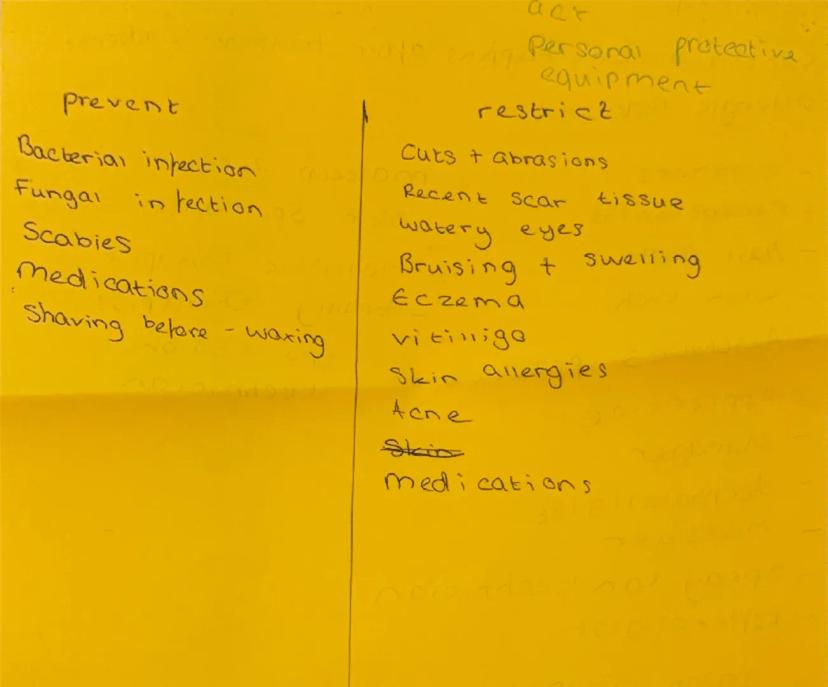 act
Personal protective
equipment
prevent
Bacterial infection
Fungal infection
Scabies
medications
Shaving before - waxing
restrict
Cuts + abrasions
Recent scar tissue
watery eyes
Bruising + swelling
Eczema
vitilligo
Skin allergies
Acne
Skin
medications